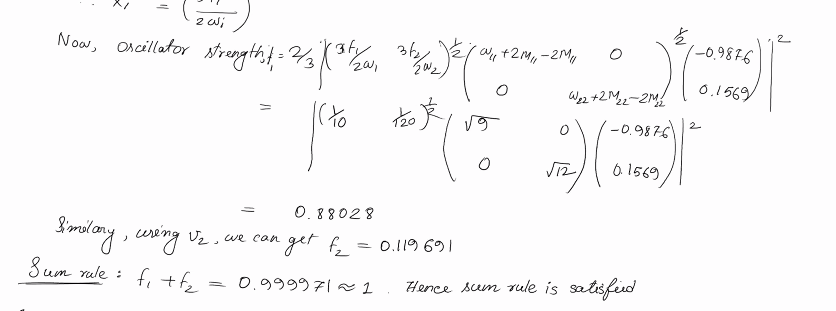 ∴ x_i = (3f_i / 2ω_i)
Now, Oscillator strength, f_1 = 2/3 |(3f_1/2ω_1 3f_2/2ω_2)^{1/2} (ω_11+2M_11−2M_11 0 ; 0 ω_22+2M_22−2M_22)^{1/2} (−0.9876 ; 0.1569)|^2
= |(1/10 1/120)^{1/2} (√9 0 ; 0 √12) (−0.9876 ; 0.1569)|^2
= 0.88028
Similary, using v_2, we can get f_2 = 0.119691
Sum rule : f_1 + f_2 = 0.999971 ≈ 1 . Hence sum rule is satisfied